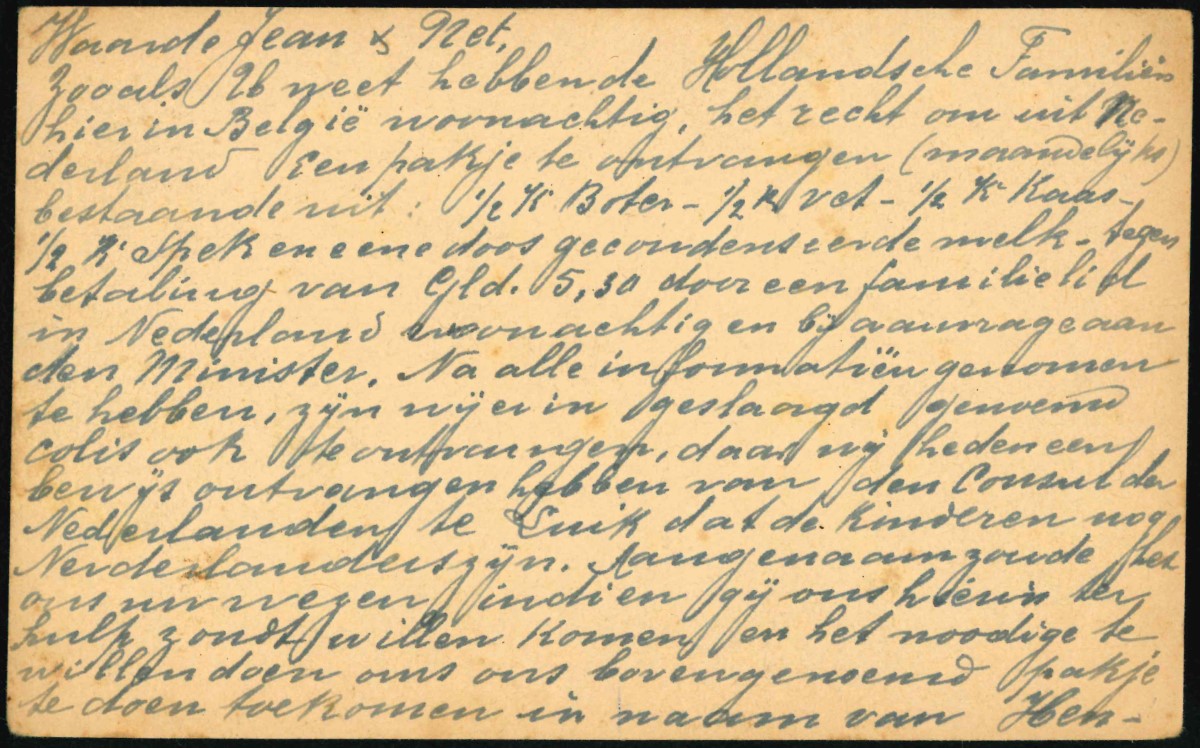 Waarde Jean & Net,
Zooals U weet hebben de Hollandsche Familiën
hier in België woonachtig, het recht om uit Ne-
derland een pakje te ontvangen (maandelijks)
bestaande uit: 1/2 K Boter - 1/2 K vet - 1/2 K Kaas -
1/2 K Spek en eene doos gecondenseerde melk - tegen
betaling van Gld. 5,30 door een familielid
in Nederland woonachtig en bij aanvrage aan
den Minister. Na alle informatiën genomen
te hebben, zijn wij er in geslaagd genoemd
colis ook te ontvangen, daar wij heden een
bewijs ontvangen hebben van den Consul der
Nederlanden te Luik dat de kinderen nog
Nerderlanders zijn. Aangenaam zoude het
ons nu wezen indien gij ons hierin ter
hulp zoudt willen komen en het noodige te
willen doen oms ons bovengenoemd pakje
te doen toekomen in naam van Hen-